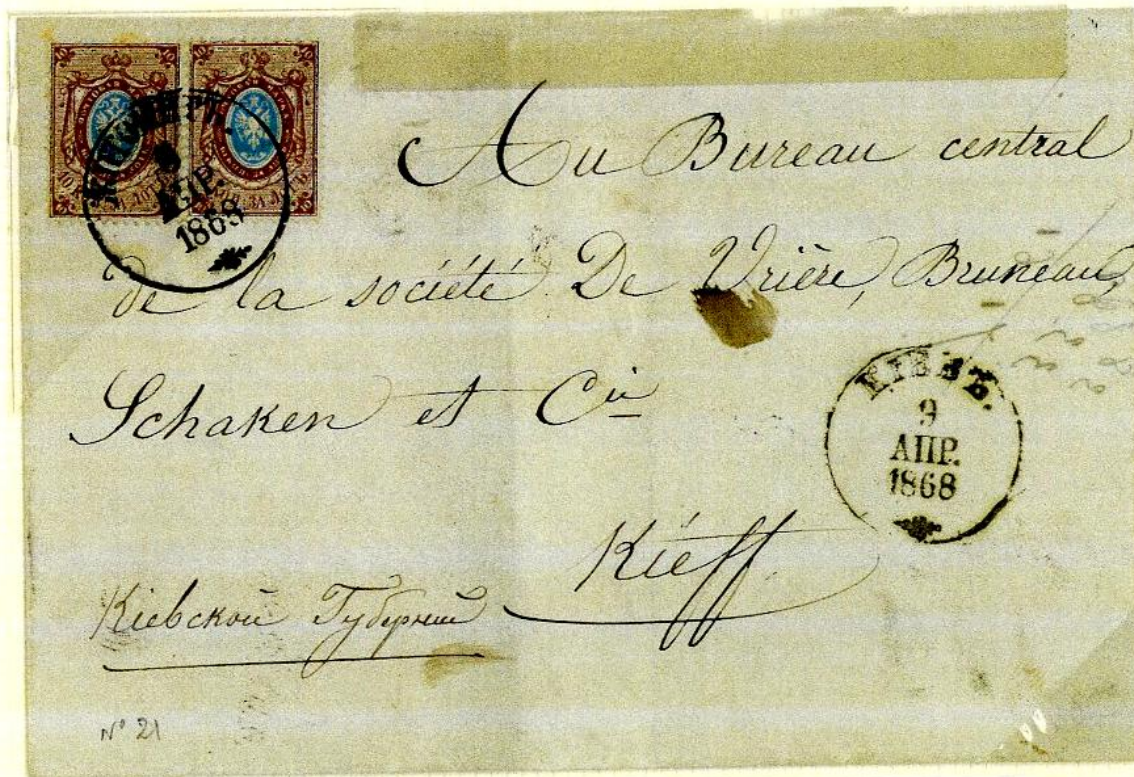 ЖИТОМИРЪ.
АПР.
1868
Au Bureau central
de la société De Vrière, Bruneau,
Schaken et Cie
КІЕВЪ.
9
АПР.
1868
Kieff
Кіевской Губерніи
N° 21